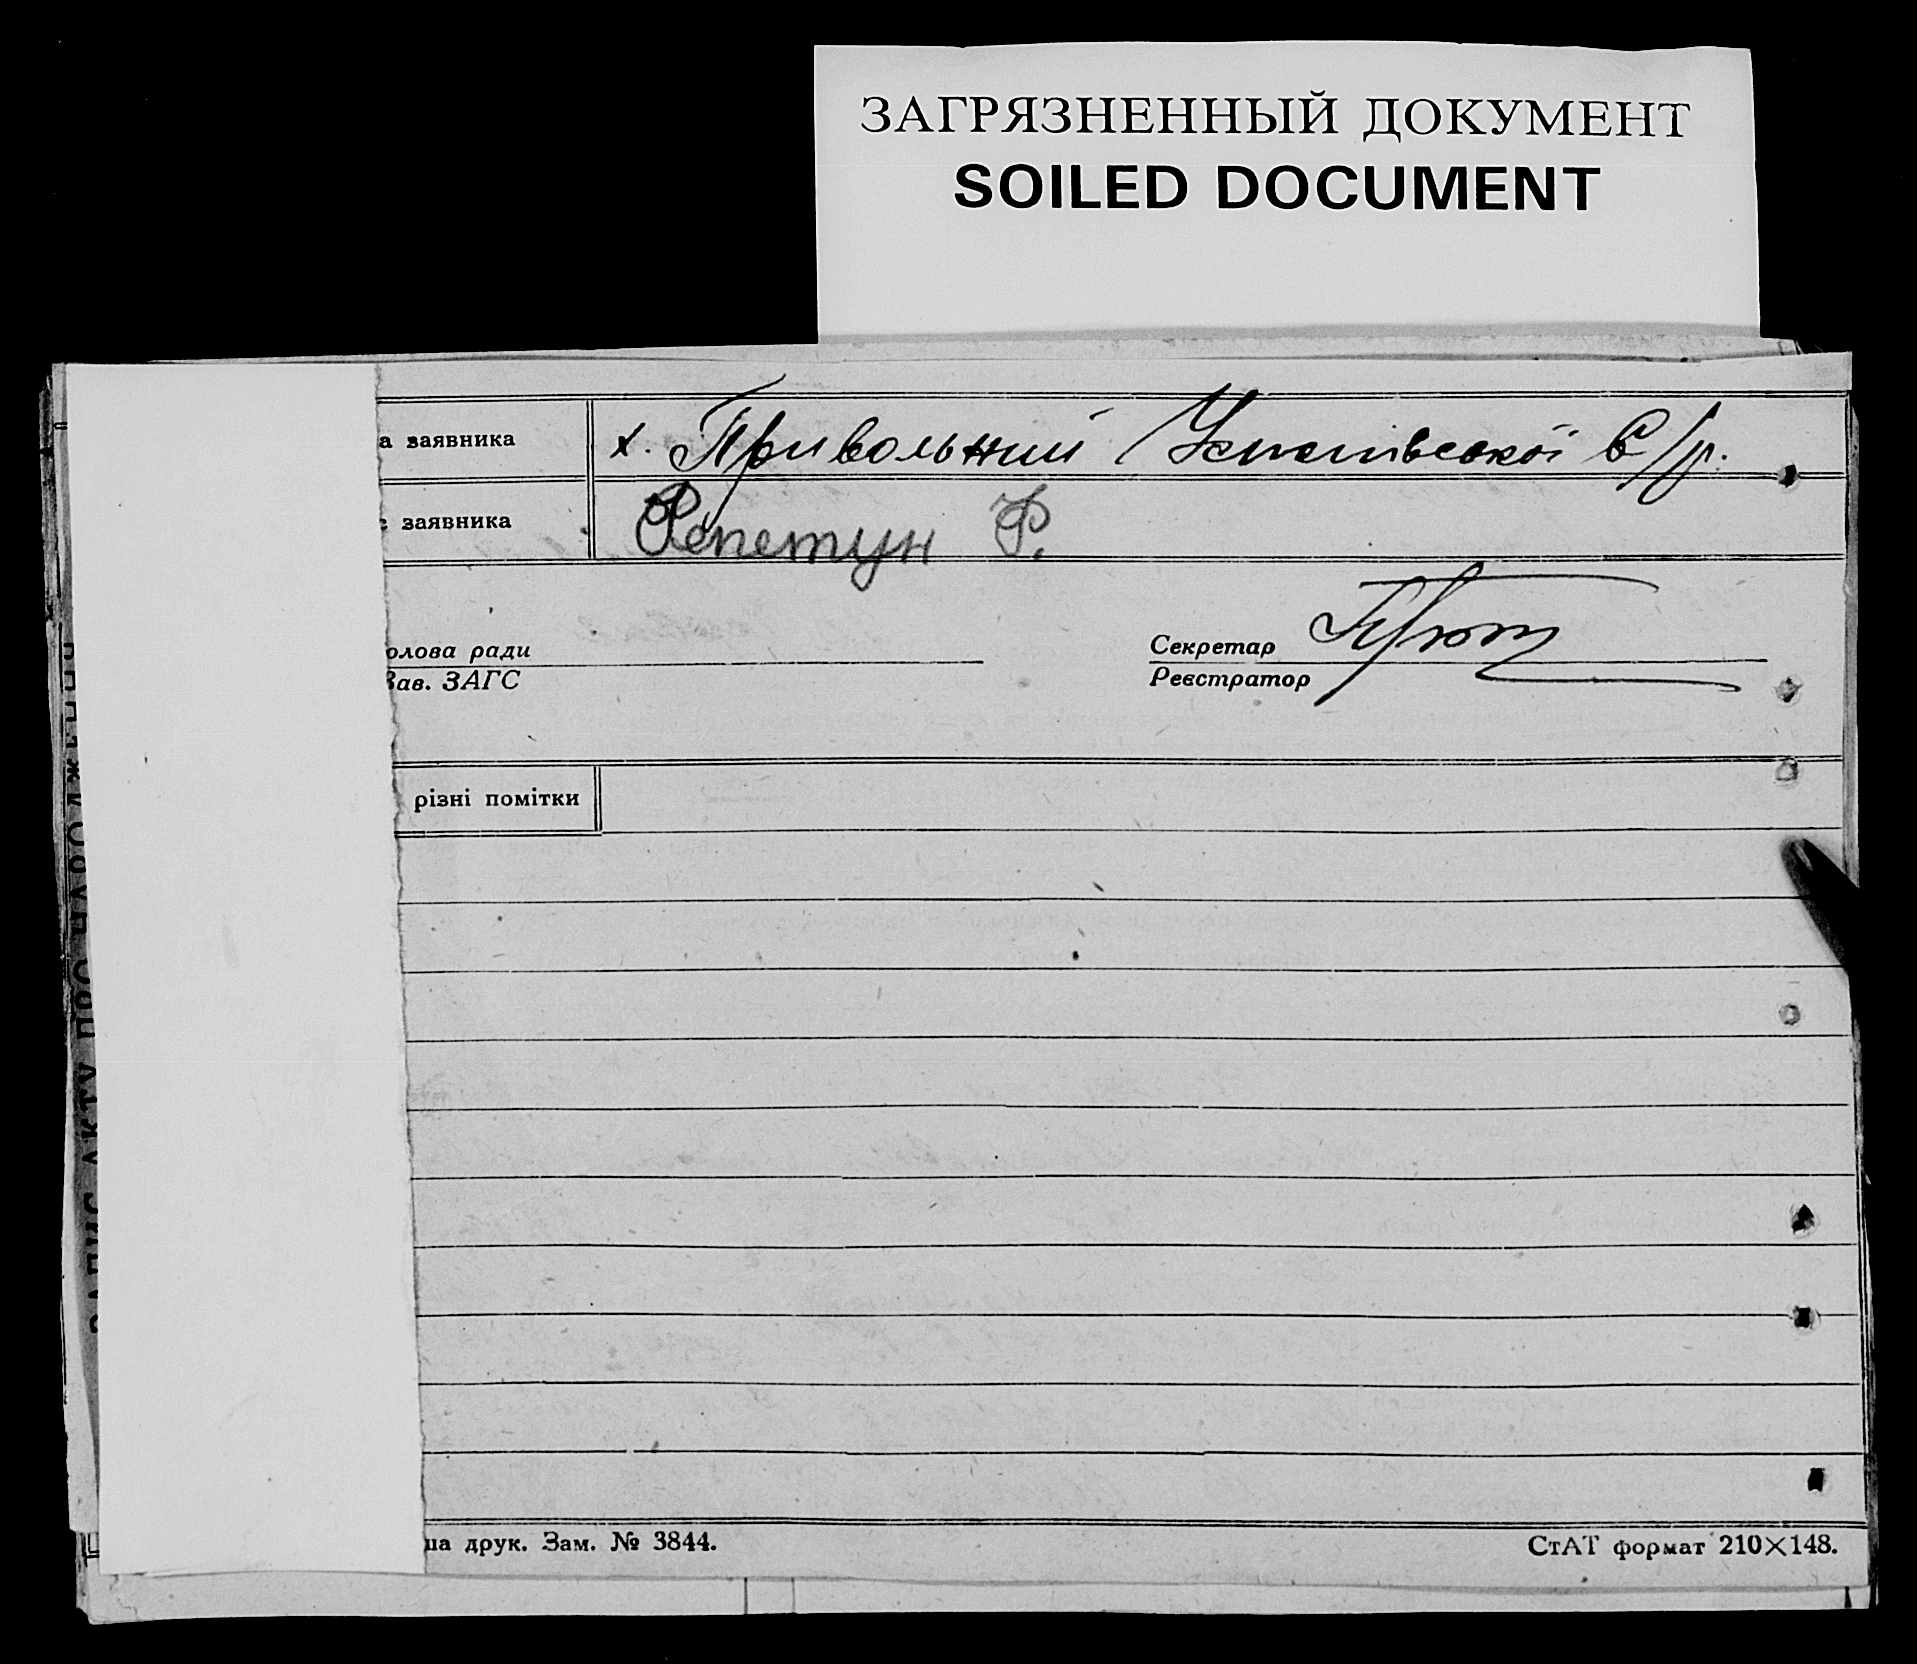 ЗАГРЯЗНЕННЫЙ ДОКУМЕНТ
SOILED DOCUMENT
а заявника х. Привольний с/р.
с заявника Репетун Ф.
олова ради
Зав. ЗАГС
Секретар
Реєстратор
різні помітки
ЗАПИС АКТУ ПРО НАРОДЖЕННЯ
ша друк. Зам. № 3844.
СтАТ формат 210×148.